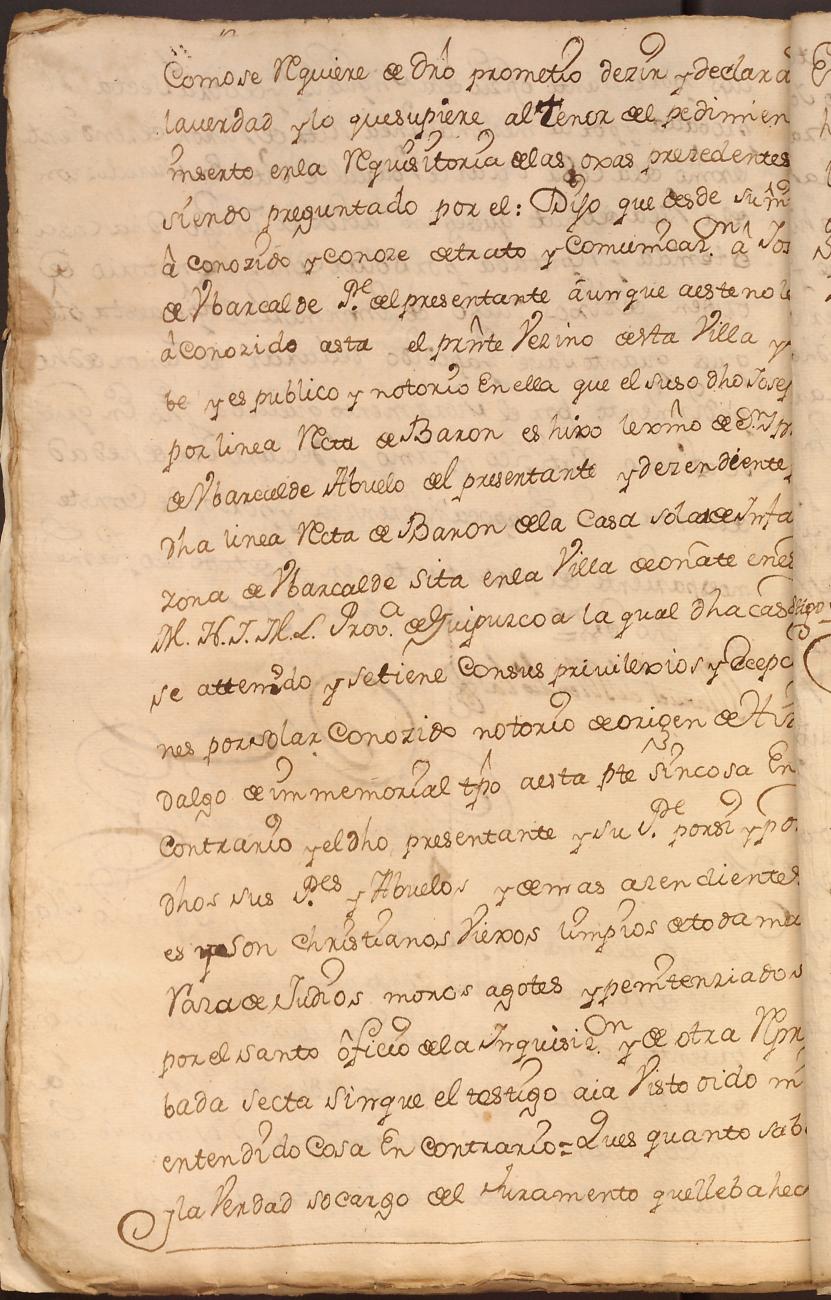 Como se Requiere de dro prometio dezir y declara
la verdad y lo que supiere al tenor del pedimien
inserto en la Requisitoria de las oxas prezedentes
siendo preguntado por el: Dijo que desde su
a conozido y conoze de trato y Comunicaz.n a Jos
de Ybarcalde P.e del presentante aunque a este no le
a conozido asta el prnte Vezino desta Villa y
be y es publico y notorio En ella que el suso dho Josep
por linea Recta de Baron es hixo lexmo de
de Ybarcalde Abuelo del presentante y dezendiente
dha linea Recta de Baron de la Casa solar de Infa
zona de Ybarcalde sita en la Villa de oñate en es
M. N. I. M. L. Prov.a de Guipuzcoa la qual dha casa
se attenido y se tiene Con sus privilexios y Ecepc
nes por solar Conozido notorio de origen de
dalgo de immemorial tpo a esta pte sin cosa En
Contrario y el dho presentante y su P.e por si y po
dhos sus P.es y Abuelos y demas azendientes
es y son Christianos Viexos limpios de toda ma
Raza de Judios moros agotes y penitenziados
por el santo oficio de la Inquisiz.n y de otra Repr
bada secta sin que el testigo aia Visto oido ni
entendido Cosa En Contrario = Que es quanto sab
y la Verdad so cargo del Juramento que lleba hec